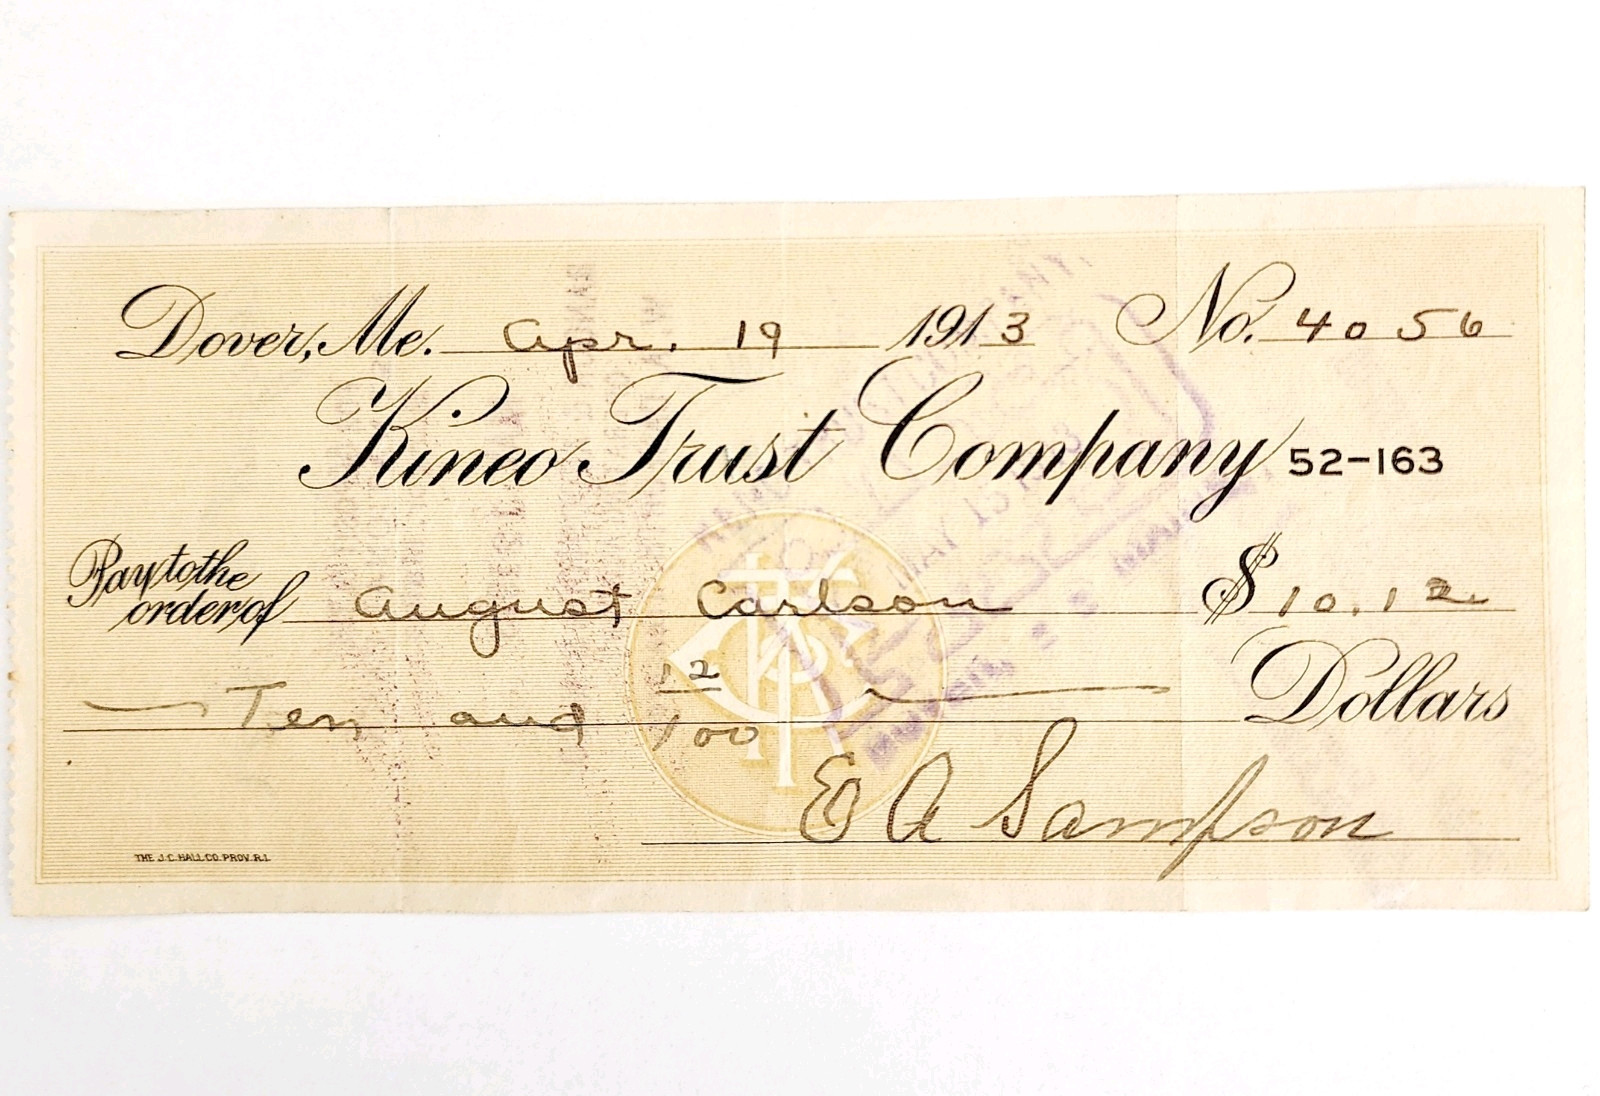 Dover, Me. Apr. 19 1913 No. 4056
Kineo Trust Company 52-163
Pay to the
order of August Carlson $ 10.12
Ten and 12/100 Dollars
E A Sampson
THE J.C. HALL CO. PROV. R.I.